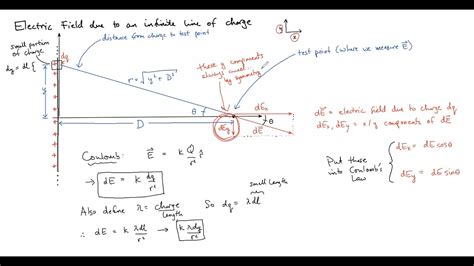 Electric Field due to an infinite line of charge
small portion
of charge
dq = dl {
dq
distance from charge to test point
r = √y² + D²
these y components
always cancel...
by symmetry
test point (where we measure E⃗)
y
x
D
θ
dEx
θ
dEy
dE⃗
dE⃗ = electric field due to charge dq
dEx, dEy = x/y components of dE⃗
Coulomb: E⃗ = k Q/r² r̂
→ dE = k dq/r²
Put these
into Coulomb's
Law
dEx = dE cosθ
dEy = dE sinθ
small length
Also define λ = charge/length So dq = λdl
∴ dE = k λdl/r² → k λdy/r²